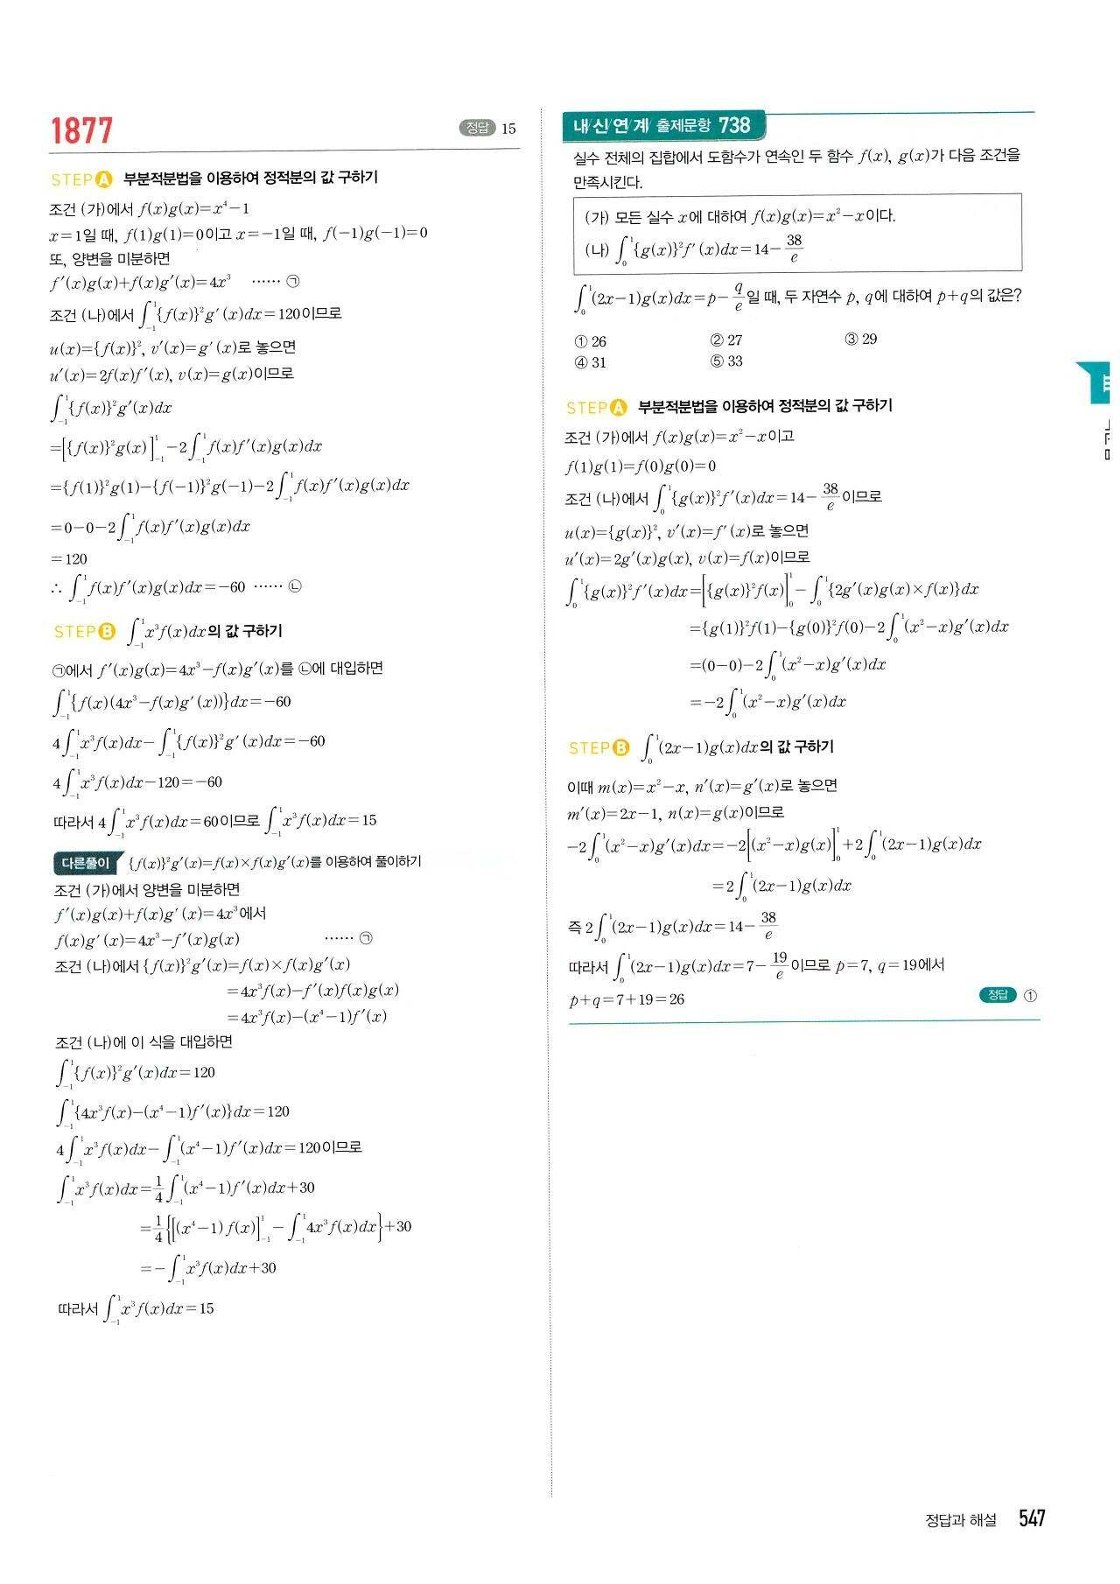 1877
정답 15
STEP A 부분적분법을 이용하여 정적분의 값 구하기
조건 (가)에서 f(x)g(x)=x⁴−1
x=1일 때, f(1)g(1)=0이고 x=−1일 때, f(−1)g(−1)=0
또, 양변을 미분하면
f′(x)g(x)+f(x)g′(x)=4x³ ······ ㉠
조건 (나)에서 ∫₋₁¹{f(x)}²g′(x)dx=120이므로
u(x)={f(x)}², v′(x)=g′(x)로 놓으면
u′(x)=2f(x)f′(x), v(x)=g(x)이므로
∫₋₁¹{f(x)}²g′(x)dx
=[{f(x)}²g(x)]₋₁¹−2∫₋₁¹f(x)f′(x)g(x)dx
={f(1)}²g(1)−{f(−1)}²g(−1)−2∫₋₁¹f(x)f′(x)g(x)dx
=0−0−2∫₋₁¹f(x)f′(x)g(x)dx
=120
∴ ∫₋₁¹f(x)f′(x)g(x)dx=−60 ······ ㉡
STEP B ∫₋₁¹x³f(x)dx의 값 구하기
㉠에서 f′(x)g(x)=4x³−f(x)g′(x)를 ㉡에 대입하면
∫₋₁¹{f(x)(4x³−f(x)g′(x))}dx=−60
4∫₋₁¹x³f(x)dx−∫₋₁¹{f(x)}²g′(x)dx=−60
4∫₋₁¹x³f(x)dx−120=−60
따라서 4∫₋₁¹x³f(x)dx=60이므로 ∫₋₁¹x³f(x)dx=15
다른풀이 {f(x)}²g′(x)=f(x)×f(x)g′(x)를 이용하여 풀이하기
조건 (가)에서 양변을 미분하면
f′(x)g(x)+f(x)g′(x)=4x³에서
f(x)g′(x)=4x³−f′(x)g(x) ······ ㉠
조건 (나)에서 {f(x)}²g′(x)=f(x)×f(x)g′(x)
=4x³f(x)−f′(x)f(x)g(x)
=4x³f(x)−(x⁴−1)f′(x)
조건 (나)에 이 식을 대입하면
∫₋₁¹{f(x)}²g′(x)dx=120
∫₋₁¹{4x³f(x)−(x⁴−1)f′(x)}dx=120
4∫₋₁¹x³f(x)dx−∫₋₁¹(x⁴−1)f′(x)dx=120이므로
∫₋₁¹x³f(x)dx=1/4∫₋₁¹(x⁴−1)f′(x)dx+30
=1/4{[(x⁴−1)f(x)]₋₁¹−∫₋₁¹4x³f(x)dx}+30
=−∫₋₁¹x³f(x)dx+30
따라서 ∫₋₁¹x³f(x)dx=15
내/신/연/계 출제문항 738
실수 전체의 집합에서 도함수가 연속인 두 함수 f(x), g(x)가 다음 조건을
만족시킨다.
(가) 모든 실수 x에 대하여 f(x)g(x)=x²−x이다.
(나) ∫₀¹{g(x)}²f′(x)dx=14−38/e
∫₀¹(2x−1)g(x)dx=p−q/e일 때, 두 자연수 p, q에 대하여 p+q의 값은?
① 26 ② 27 ③ 29
④ 31 ⑤ 33
STEP A 부분적분법을 이용하여 정적분의 값 구하기
조건 (가)에서 f(x)g(x)=x²−x이고
f(1)g(1)=f(0)g(0)=0
조건 (나)에서 ∫₀¹{g(x)}²f′(x)dx=14−38/e이므로
u(x)={g(x)}², v′(x)=f′(x)로 놓으면
u′(x)=2g′(x)g(x), v(x)=f(x)이므로
∫₀¹{g(x)}²f′(x)dx=[{g(x)}²f(x)]₀¹−∫₀¹{2g′(x)g(x)×f(x)}dx
={g(1)}²f(1)−{g(0)}²f(0)−2∫₀¹(x²−x)g′(x)dx
=(0−0)−2∫₀¹(x²−x)g′(x)dx
=−2∫₀¹(x²−x)g′(x)dx
STEP B ∫₀¹(2x−1)g(x)dx의 값 구하기
이때 m(x)=x²−x, n′(x)=g′(x)로 놓으면
m′(x)=2x−1, n(x)=g(x)이므로
−2∫₀¹(x²−x)g′(x)dx=−2[(x²−x)g(x)]₀¹+2∫₀¹(2x−1)g(x)dx
=2∫₀¹(2x−1)g(x)dx
즉 2∫₀¹(2x−1)g(x)dx=14−38/e
따라서 ∫₀¹(2x−1)g(x)dx=7−19/e이므로 p=7, q=19에서
p+q=7+19=26
정답 ①
정답과 해설 547